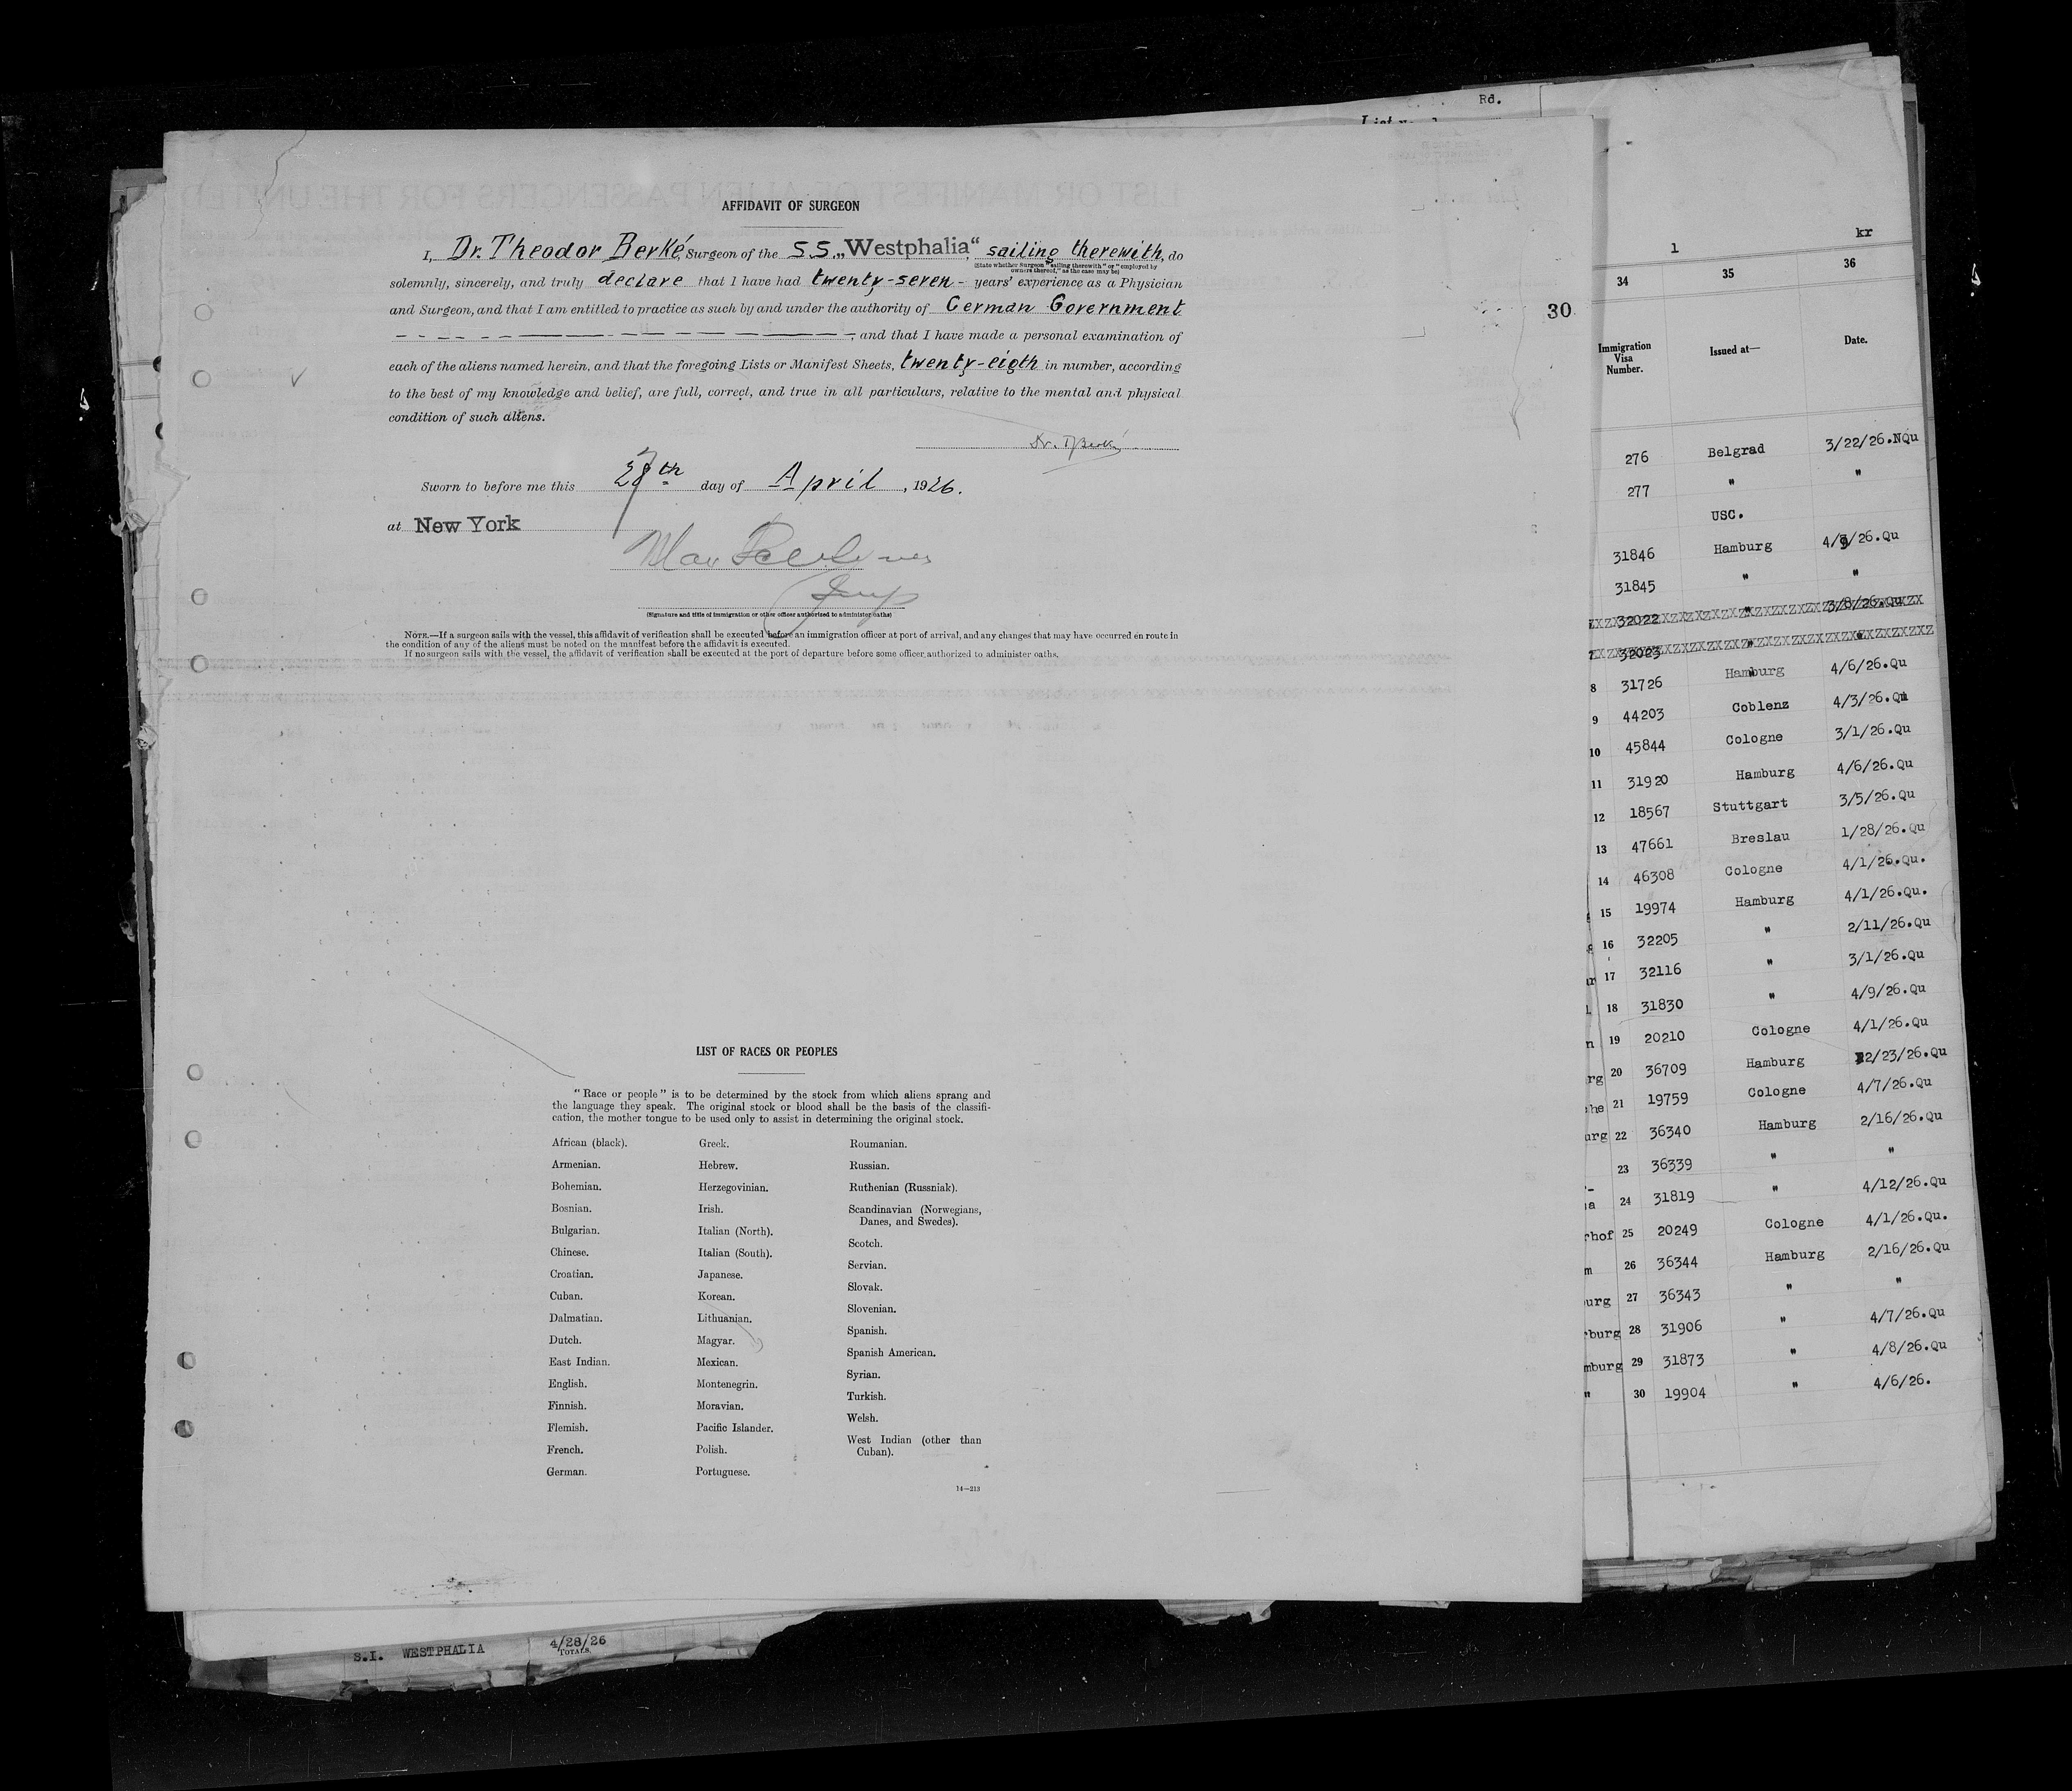 Rd.
AFFIDAVIT OF SURGEON
I, Dr. Theodor Berké, Surgeon of the S.S. „Westphalia“, sailing therewith, do
(State whether Surgeon "sailing therewith" or "employed by
owners thereof," as the case may be)
solemnly, sincerely, and truly declare that I have had twenty-seven - years' experience as a Physician
and Surgeon, and that I am entitled to practice as such by and under the authority of German Government
, and that I have made a personal examination of
each of the aliens named herein, and that the foregoing Lists or Manifest Sheets, twenty-eigth in number, according
to the best of my knowledge and belief, are full, correct, and true in all particulars, relative to the mental and physical
condition of such aliens.
Dr. T. Berké
Sworn to before me this 27th day of April, 1926.
at New York
Max
Insp
(Signature and title of immigration or other officer authorized to administer oaths)
NOTE.—If a surgeon sails with the vessel, this affidavit of verification shall be executed before an immigration officer at port of arrival, and any changes that may have occurred en route in
the condition of any of the aliens must be noted on the manifest before the affidavit is executed.
If no surgeon sails with the vessel, the affidavit of verification shall be executed at the port of departure before some officer authorized to administer oaths.
30
LIST OF RACES OR PEOPLES
"Race or people" is to be determined by the stock from which aliens sprang and
the language they speak. The original stock or blood shall be the basis of the classifi-
cation, the mother tongue to be used only to assist in determining the original stock.
African (black).
Armenian.
Bohemian.
Bosnian.
Bulgarian.
Chinese.
Croatian.
Cuban.
Dalmatian.
Dutch.
East Indian.
English.
Finnish.
Flemish.
French.
German.
Greek.
Hebrew.
Herzegovinian.
Irish.
Italian (North).
Italian (South).
Japanese.
Korean.
Lithuanian.
Magyar.
Mexican.
Montenegrin.
Moravian.
Pacific Islander.
Polish.
Portuguese.
Roumanian.
Russian.
Ruthenian (Russniak).
Scandinavian (Norwegians,
Danes, and Swedes).
Scotch.
Servian.
Slovak.
Slovenian.
Spanish.
Spanish American.
Syrian.
Turkish.
Welsh.
West Indian (other than
Cuban).
14—213
S.I. WESTPHALIA 4/28/26
TOTALS
1 kr
34 35 36
Immigration
Visa
Number.
Issued at—
Date.
276 Belgrad 3/22/26.NQu
277 " "
USC.
31846 Hamburg 4/3/26.Qu
31845 " "
32022 " 3/8/26.Qu
32023 " "
8 31726 Hamburg 4/6/26.Qu
9 44203 Coblenz 4/3/26.Qu
10 45844 Cologne 3/1/26.Qu
11 31920 Hamburg 4/6/26.Qu
12 18567 Stuttgart 3/5/26.Qu
13 47661 Breslau 1/28/26.Qu
14 46308 Cologne 4/1/26.Qu.
15 19974 Hamburg 4/1/26.Qu.
16 32205 " 2/11/26.Qu
17 32116 " 3/1/26.Qu
18 31830 " 4/9/26.Qu
19 20210 Cologne 4/1/26.Qu
rg 20 36709 Hamburg 2/23/26.Qu
he 21 19759 Cologne 4/7/26.Qu
urg 22 36340 Hamburg 2/16/26.Qu
23 36339 " "
a 24 31819 " 4/12/26.Qu
rhof 25 20249 Cologne 4/1/26.Qu.
m 26 36344 Hamburg 2/16/26.Qu
urg 27 36343 " "
rburg 28 31906 " 4/7/26.Qu
mburg 29 31873 " 4/8/26.Qu
" 30 19904 " 4/6/26.